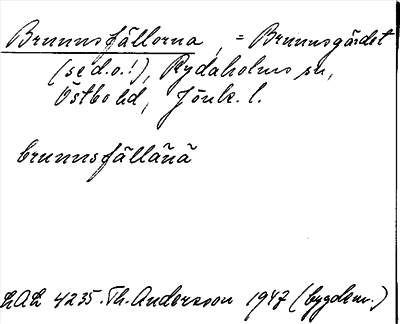 Brunnsfällorna, = Brunnsgärdet
(se d.o.!), Rydaholms sn,
Östbo hd, Jönk. l.
brunnsfälläñä
LAL 4235. Th. Andersson 1947 (bygdem.)